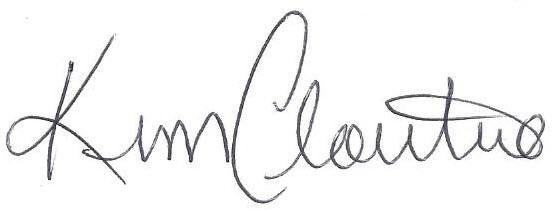 Kim Cloutier